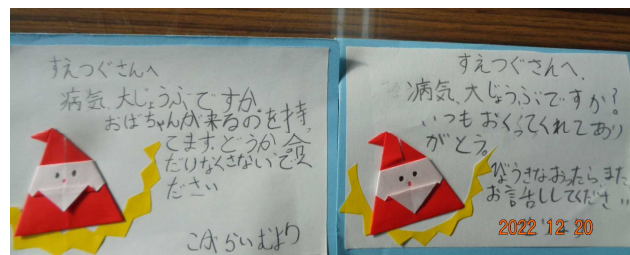 すえつぐさんへ
病気、大じょうぶですか。
おばちゃんが来るのを持っ
てます。どうか命
だけなくさないで
ださい
こばらいむより
すえつぐさんへ、
病気、大じょうぶですか?
いつもおくってくれてあり
がとう。
びょうきなおったらまた
お話ししてください
2022 12 20